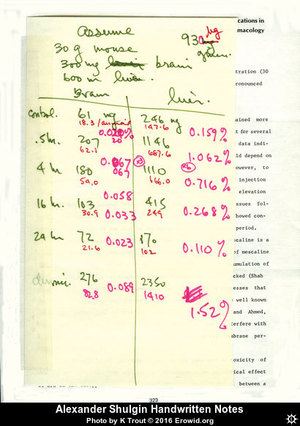 Assume
30 g mouse
300 mg brain
600 m liver.
93 mg
given.
Brain liver.
control. 61 ng 246 ng
18.3 147.6
0.020% 0.159%
.5 hr. 207 1146
62.1 687.6
0.067 1.062%
4 hr. 180 1110
50.0 666.0
0.716%
0.058
16 hr. 103 415
30.9 0.033 249 0.268%
24 hr. 72 170
21.6 0.023 102 0.110%
276 2350
82.8 0.089 1410
1.52%
cations in
macology
tration (30
pronounced
ained more
t for several
data indi-
ld depend on
owever, to
injection
elevation
ssues fol-
bowed con-
period.
scaline is a
of mescaline
umulation of
cked (Shah
esses that
well known
and Ahmed,
terfere with
mbrane per-
oxicity of
ical effect
between a
323
Alexander Shulgin Handwritten Notes
Photo by K Trout © 2016 Erowid.org